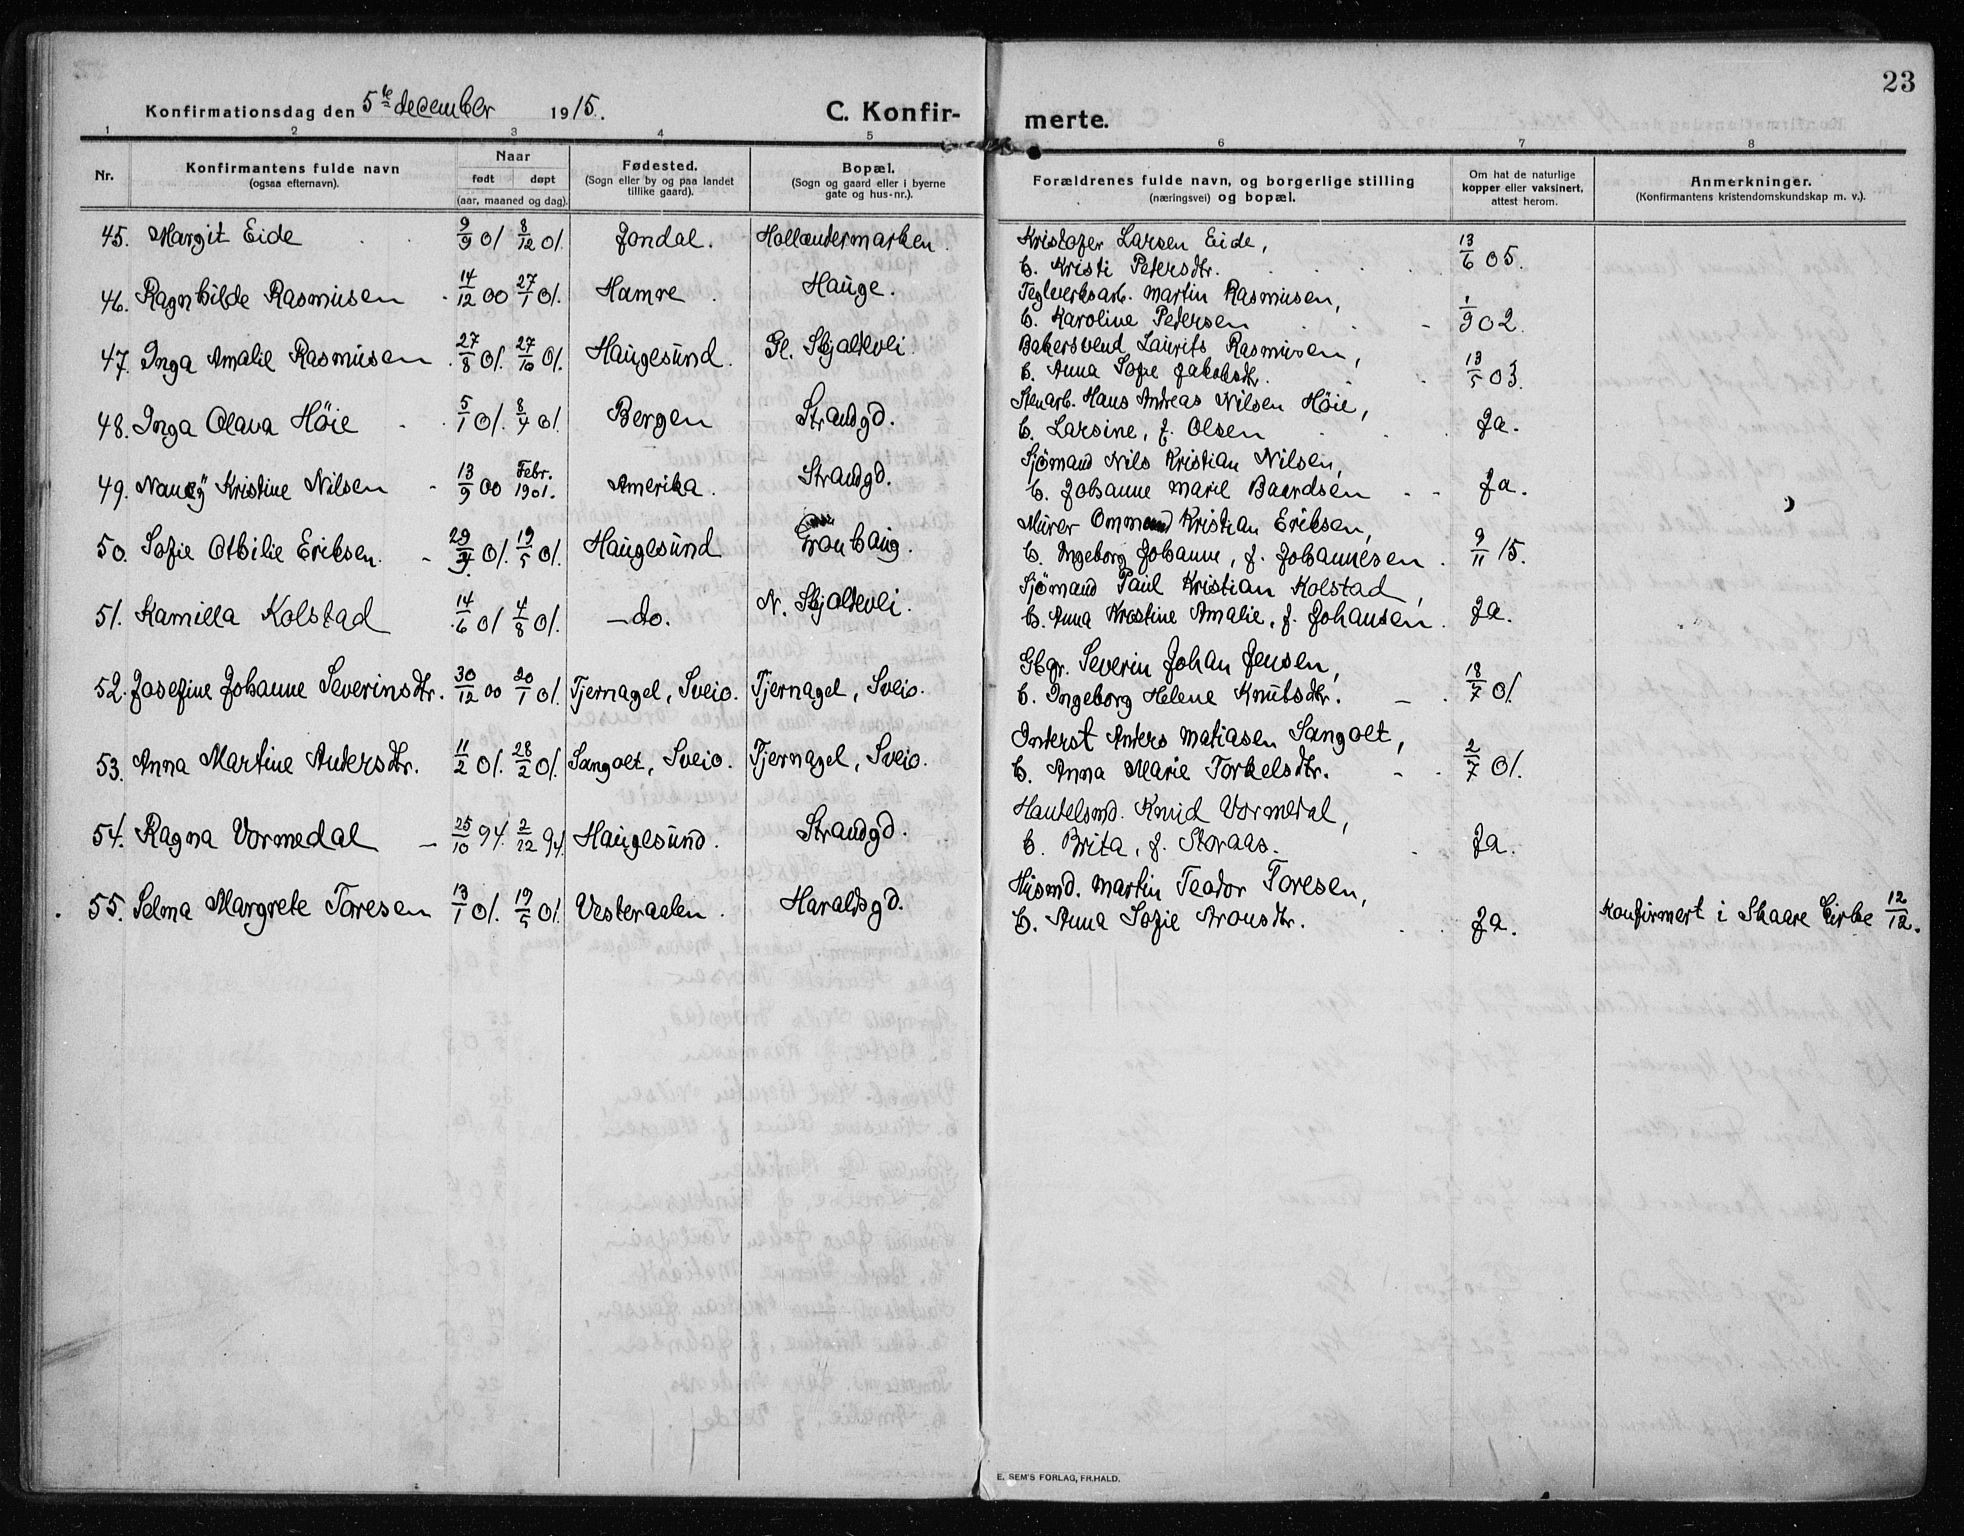 23
Konfirmationsdag den 5te december 1915. C. Konfir- merte.
1 2 3 4 5 6 7 8
Nr. Konfirmantens fulde navn (ogsaa efternavn). Naar født døpt (aar, maaned og dag). Fødested. (Sogn eller by og paa landet tillike gaard). Bopæl. (Sogn og gaard eller i byerne gate og hus-nr.). Forældrenes fulde navn, og borgerlige stilling (næringsvei) og bopæl. Om hat de naturlige kopper eller vaksinert, attest herom. Anmerkninger. (Konfirmantens kristendomskundskap m. v.).
45. Margit Eide 9/9 01 8/12 01. Jondal. Hollændermarken. Kristofer Larsen Eide, 13/6 05.
C. Kristi Petersdtr.
46. Ragnhilde Rasmusen 14/12 00 27/1 01. Hamre. Hauge. Teglverksarb. Martin Rasmusen, 1/9 02.
C. Karoline Petersen
47. Inga Amalie Rasmusen 27/8 01. 27/10 01. Haugesund. Gl. Skjoldevei. Bakersvend Laurits Rasmusen, 13/5 03.
C. Anna Sofie Jakobsdtr.
48. Inga Olava Höie 5/1 01. 8/4 01. Bergen Strandgd. Stenarb. Hans Andreas Nilsen Höie, Ja.
C. Larsine, f. Olsen
49. Nancy Kristine Nilsen 13/9 00 Febr. 1901. Amerika. Strandgd. Sjömand Nils Kristian Nilsen, Ja.
C. Johanne Marie Baardsen
50. Sofie Othilie Eriksen. 01. 19/5 01. Haugesund Murer Ommund Kristian Eriksen, 9/11 15.
C. Ingeborg Johanne, f. Johannesen
51. Kamilla Kolstad 14/6 01 4/8 01. -do. N. Skjoldevei. Sjömand Paul Kristian Kolstad, Ja.
C. Anna Kristine Amalie, f. Johansen.
52. Josefine Johanne Severinsdtr. 30/12 00 20/1 01. Tjernagel, Sveio. Tjernagel, Sveio. Gbr. Severin Johan Jensen, 18/7 01.
C. Ingeborg Helene Knutsdtr.
53. Anna Martine Andersdtr. 11/2 01. 28/2 01. Sangolt, Sveio. Tjernagel, Sveio. Inderst Anders Matiasen Sangolt, 2/7 01.
C. Anna Marie Torkelsdtr.
54. Ragna Vormedal 25/10 94. 2/12 94. Haugesund. Strandgd. Handelsmd. Knud Vormedal, Ja.
C. Brita, f. Storaas.
55. Selma Margrete Toresen 13/1 01. 19/5 01. Vesteraalen. Haraldsgd. Husmd. Martin Teodor Toresen, Ja. Konfirmert i Skaare Kirke 12/12.
C. Anna Sofie Aronsdtr.
E. SEM'S FORLAG, FR.HALD.